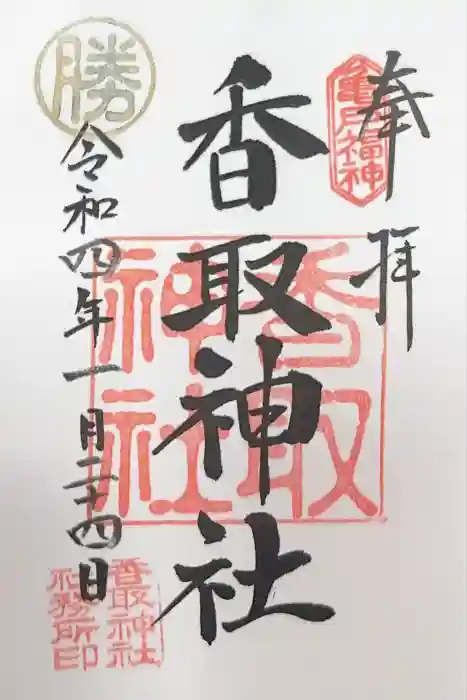 奉拝
亀戸福神
香取神社
香取神社
勝
令和四年一月二十四日
香取神社
社務所印